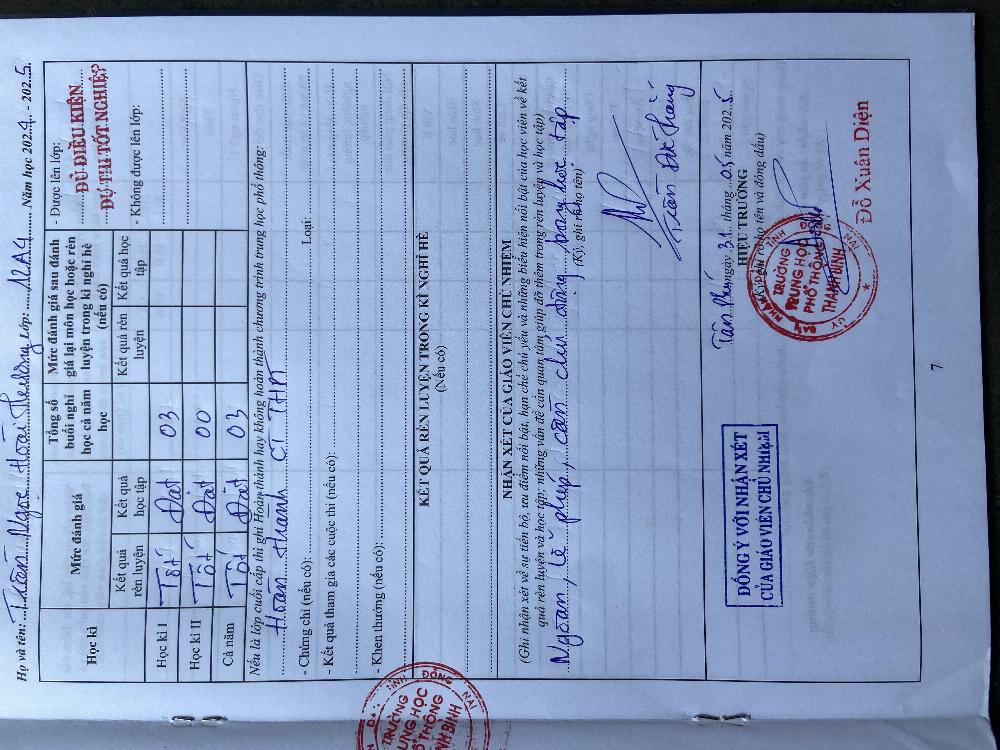 Họ và tên: Trần Ngọc Hoài Thương Lớp: 12A4 Năm học 2024 - 2025
Học kì
Mức đánh giá
Kết quả rèn luyện
Kết quả học tập
Tổng số buổi nghỉ học cả năm học
Mức đánh giá sau đánh giá lại môn học hoặc rèn luyện trong kì nghỉ hè (nếu có)
Kết quả rèn luyện
Kết quả học tập
- Được lên lớp:
ĐỦ ĐIỀU KIỆN
DỰ THI TỐT NGHIỆP
- Không được lên lớp:
Học kì I Tốt Đạt 03
Học kì II Tốt Đạt 00
Cả năm Tốt Đạt 03
Nếu là lớp cuối cấp thì ghi Hoàn thành hay không hoàn thành chương trình trung học phổ thông:
Hoàn thành CT THPT
- Chứng chỉ (nếu có): Loại:
- Kết quả tham gia các cuộc thi (nếu có):
- Khen thưởng (nếu có):
KẾT QUẢ RÈN LUYỆN TRONG KÌ NGHỈ HÈ
(Nếu có)
NHẬN XÉT CỦA GIÁO VIÊN CHỦ NHIỆM
(Ghi nhận xét về sự tiến bộ, ưu điểm nổi bật, hạn chế chủ yếu và những biểu hiện nổi bật của học viên về kết
quả rèn luyện và học tập; những vấn đề cần quan tâm giúp đỡ thêm trong rèn luyện và học tập)
Ngoan, lễ phép, cần chủ động trong học tập
(Ký, ghi rõ họ tên)
Trần Đức Thắng
ĐỒNG Ý VỚI NHẬN XÉT
CỦA GIÁO VIÊN CHỦ NHIỆM
Tân Phú, ngày 31 tháng 05 năm 2025
HIỆU TRƯỞNG
(Ký, ghi rõ họ tên và đóng dấu)
TRƯỜNG
TRUNG HỌC
PHỔ THÔNG
THANH BÌNH
Đỗ Xuân Diện
TỈNH ĐỒNG NAI
TRƯỜNG
7